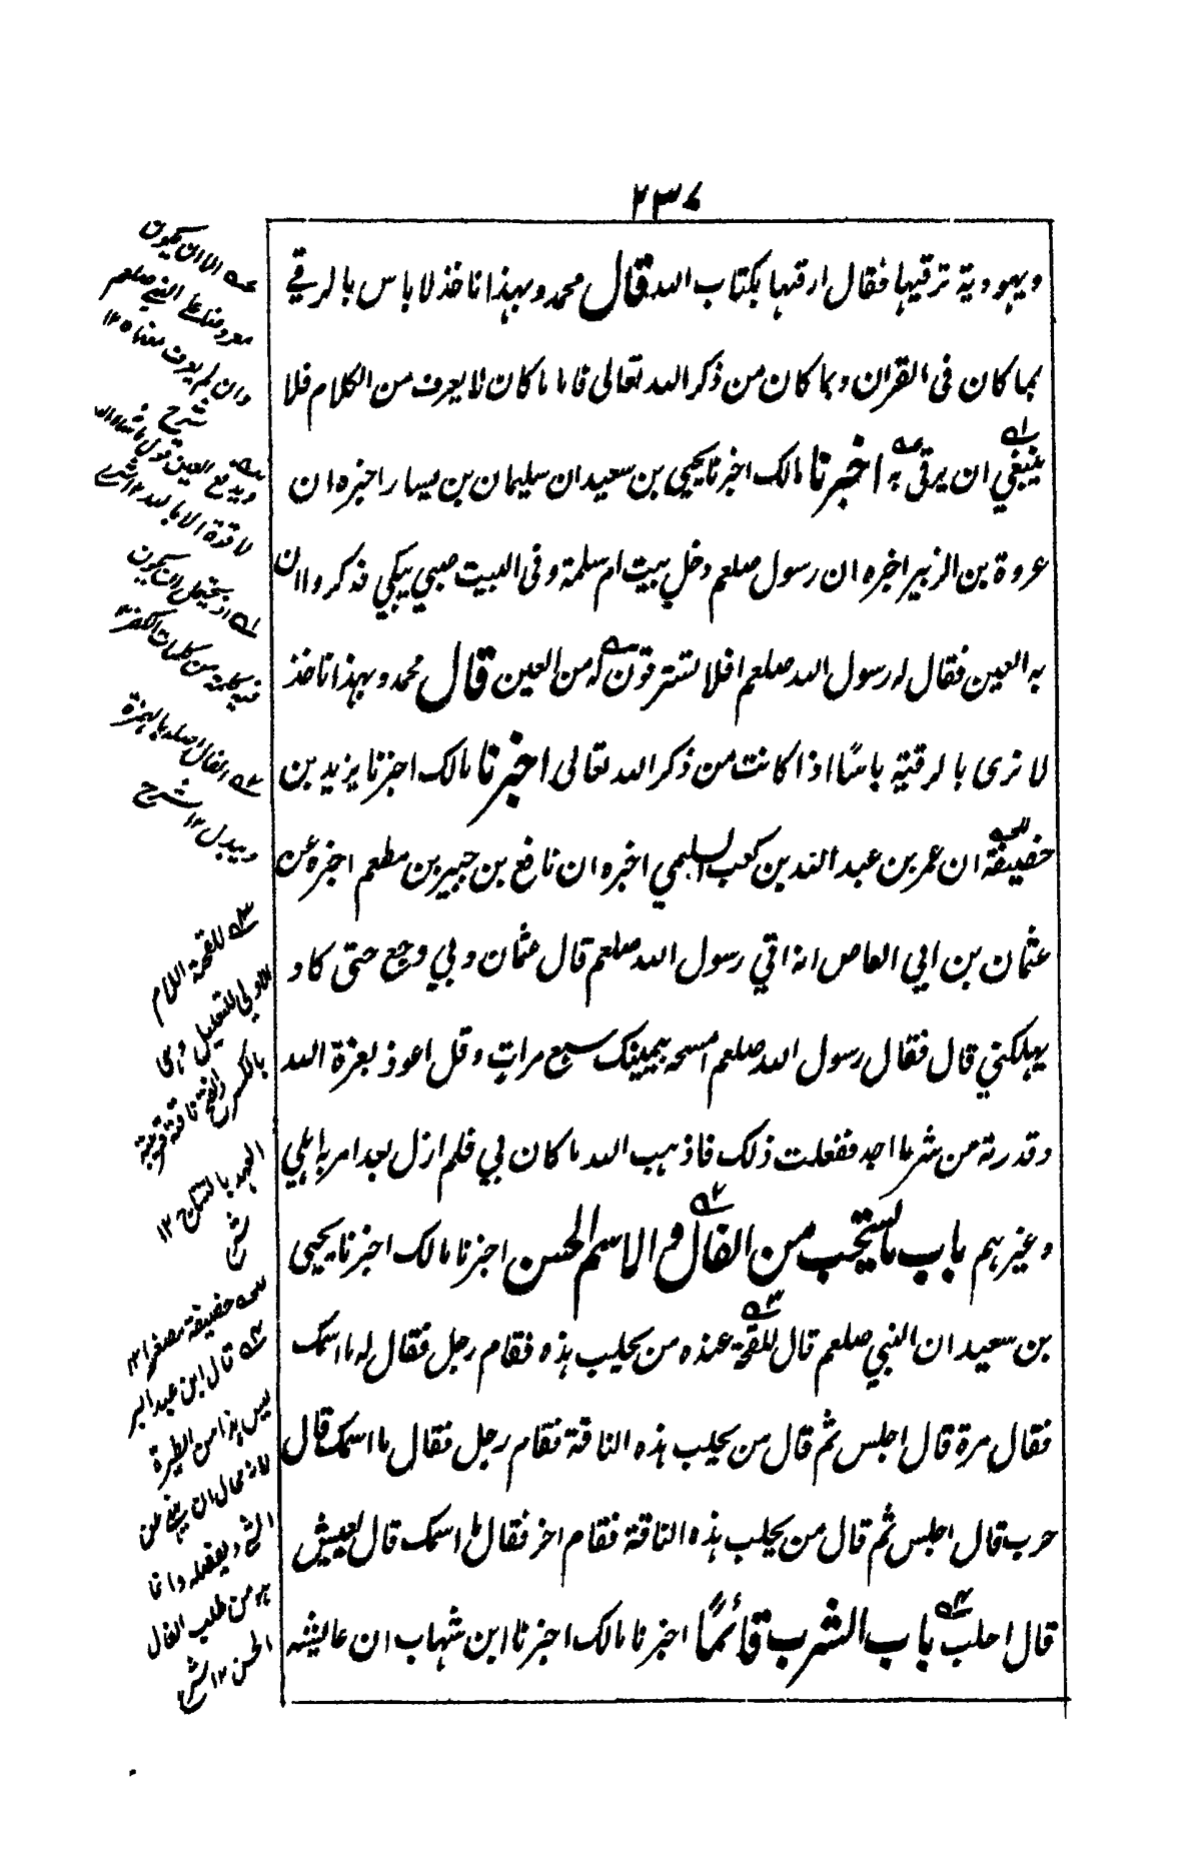 ٢٣٧
ويهودية ترقيها فقال ارقيها بكتاب الله قال محمد وبهذا ناخذ لا باس بالرقي
بما كان في القران وبما كان من ذكر الله تعالى فاما ما كان لا يعرف من الكلام فلا
ينبغي ان يرقى به اخبرنا مالك اخبرنا يحيى بن سعيد ان سليمان بن يسار اخبره ان
عروة بن الزبير اخبره ان رسول صلعم دخل بيت ام سلمة وفى البيت صبي يبكي فذكروا ان
به العين فقال له رسول الله صلعم افلا تسترقون له من العين قال محمد وبهذا ناخذ
لا نرى بالرقية باسًا اذا كانت من ذكر الله تعالى اخبرنا مالك اخبرنا يزيد بن
خصيفة ان عمر بن عبد الله بن كعب السلمي اخبره ان نافع بن جبير بن مطعم اخبره عن
عثمان بن ابي العاص انه اتي رسول الله صلعم قال عثمان وبي وجع حتى كاد
يهلكني قال فقال رسول الله صلعم امسحه بيمينك سبع مرات وقل اعوذ بعزة الله
وقدرته من شر ما اجد ففعلت ذلك فاذهب الله ما كان بي فلم ازل بعد امر به اهلي
وغيرهم باب ما يستحب من الفال والاسم الحسن اخبرنا مالك اخبرنا يحيى
بن سعيد ان النبي صلعم قال للقحة عنده من يحلب هذه فقام رجل فقال له ما اسمك
فقال مرة قال اجلس ثم قال من يحلب هذه الناقة فقام رجل فقال ما اسمك قال
حرب قال اجلس ثم قال من يحلب هذه الناقة فقام اخر فقال ما اسمك قال يعيش
قال احلب باب الشرب قائمًا اخبرنا مالك اخبرنا ابن شهاب ان عائيشه
الا ان يكون
معروضا على النبي صلعم
وان لم يعرف معناه ١٢
شرح
ويدفع العين قول ما شاء الله
لا قوة الا بالله ١٢ شرح
اذ يحتمل ان يكون
فيه كلمة من كلمات الكفر ١٢
الفال اصله بالهمزة
ويبدل ١٢ شرح
للقحة اللام
الاولى للتعليل وهى
بالكسر والفتح ناقة قريبة
العهد بالنتاج ١٢
ش
خصيفة مصغر ١٢
قال ابن عبد البر
ليس هذا من الطيرة
لانه محال ان ينهى عن
الشئ ويفعله وانما
هو من طلب الفال
الحسن ١٢ ش